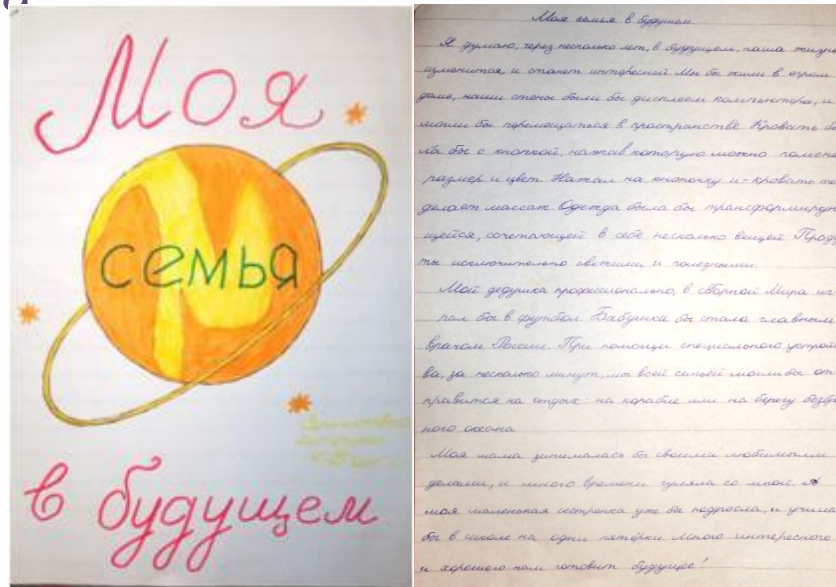 Моя
семья
в будущем
Моя семья в будущем.
Я думаю, через несколько лет, в будущем, наша жизнь
изменится, и станет интересной. Мы бы жили в огром
доме, наши стены были бы дисплеем компьютера, и
могли бы перемещаться в пространстве. Кровать бы
ла бы с кнопкой, нажав которую можно поменя
размер и цвет. Нажал на кнопочку и - кровать те
делает массаж. Одежда была бы трансформирую
щейся, сочетающей в себе несколько вещей. Проду
ты исключительно свежими и полезными.
Мой дедушка профессионально, в сборной Мира иг
рал бы в футбол. Бабушка бы стала главным
врачом России. При помощи специального устройс
ва, за несколько минут, мы всей семьёй могли бы от
правится на отдых: на корабле или на берегу безбр
ного океана.
Моя мама занималась бы своими любимыми
делами, и много времени гуляла со мной. А
моя маленькая сестрёнка уже бы подросла, и учила
бы в школе на одни пятёрки. Много интересного
и хорошего нам готовит будущее!